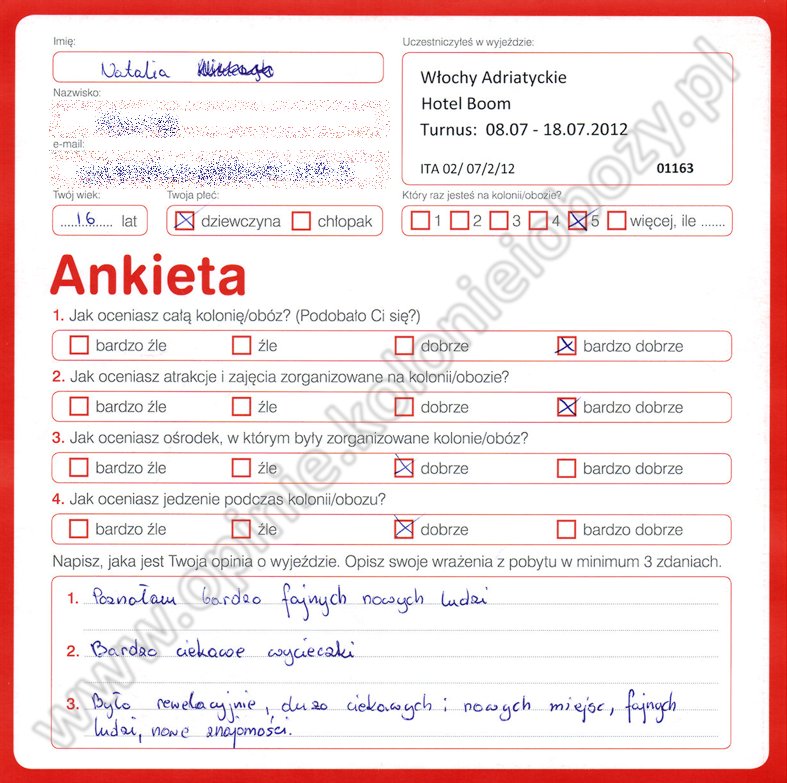 Imię:
Natalia
Uczestniczyłeś w wyjeździe:
Włochy Adriatyckie
Hotel Boom
Turnus: 08.07 - 18.07.2012
ITA 02/ 07/2/12 01163
Nazwisko:
e-mail:
Twój wiek:
16 lat
Twoja płeć:
dziewczyna chłopak
Który raz jesteś na kolonii/obozie?
1 2 3 4 5 więcej, ile .......
Ankieta
1. Jak oceniasz całą kolonię/obóz? (Podobało Ci się?)
bardzo źle źle dobrze bardzo dobrze
2. Jak oceniasz atrakcje i zajęcia zorganizowane na kolonii/obozie?
bardzo źle źle dobrze bardzo dobrze
3. Jak oceniasz ośrodek, w którym były zorganizowane kolonie/obóz?
bardzo źle źle dobrze bardzo dobrze
4. Jak oceniasz jedzenie podczas kolonii/obozu?
bardzo źle źle dobrze bardzo dobrze
Napisz, jaka jest Twoja opinia o wyjeździe. Opisz swoje wrażenia z pobytu w minimum 3 zdaniach.
1. Poznałam bardzo fajnych nowych ludzi
2. Bardzo ciekawe wycieczki
3. Było rewelacyjnie, dużo ciekawych i nowych miejsc, fajnych
ludzi, nowe znajomości.
www.opinie.kolonieiobozy.pl